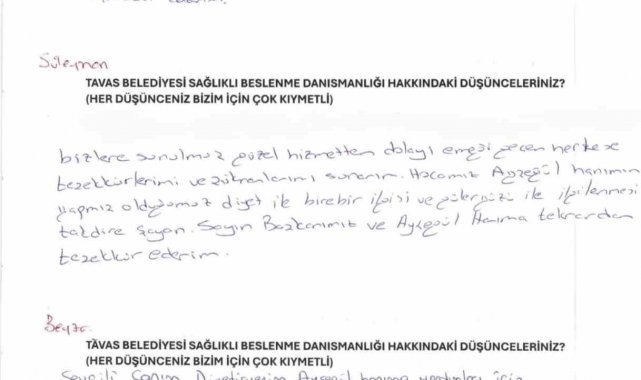 Süleyman
TAVAS BELEDİYESİ SAĞLIKLI BESLENME DANISMANLIĞI HAKKINDAKİ DÜŞÜNCELERİNİZ?
(HER DÜŞÜNCENİZ BİZİM İÇİN ÇOK KIYMETLİ)
bizlere sunulmuz güzel hizmetten dolayı emeği geçen herkese
teşekkürlerimi ve şükranlarımı sunarım. Hocamız Ayşegül hanımın
yapmış olduğumuz diyet ile birebir ilgisi ve güleryüzü ile ilgilenmesi
takdire şayan. Sayın Başkanımız ve Ayşegül Hanıma tekrardan
teşekkür ederim.
Beyza
TAVAS BELEDİYESİ SAĞLIKLI BESLENME DANISMANLIĞI HAKKINDAKİ DÜŞÜNCELERİNİZ?
(HER DÜŞÜNCENİZ BİZİM İÇİN ÇOK KIYMETLİ)
Sevgili Canım Diyetisyenim Ayşegül hanımın için